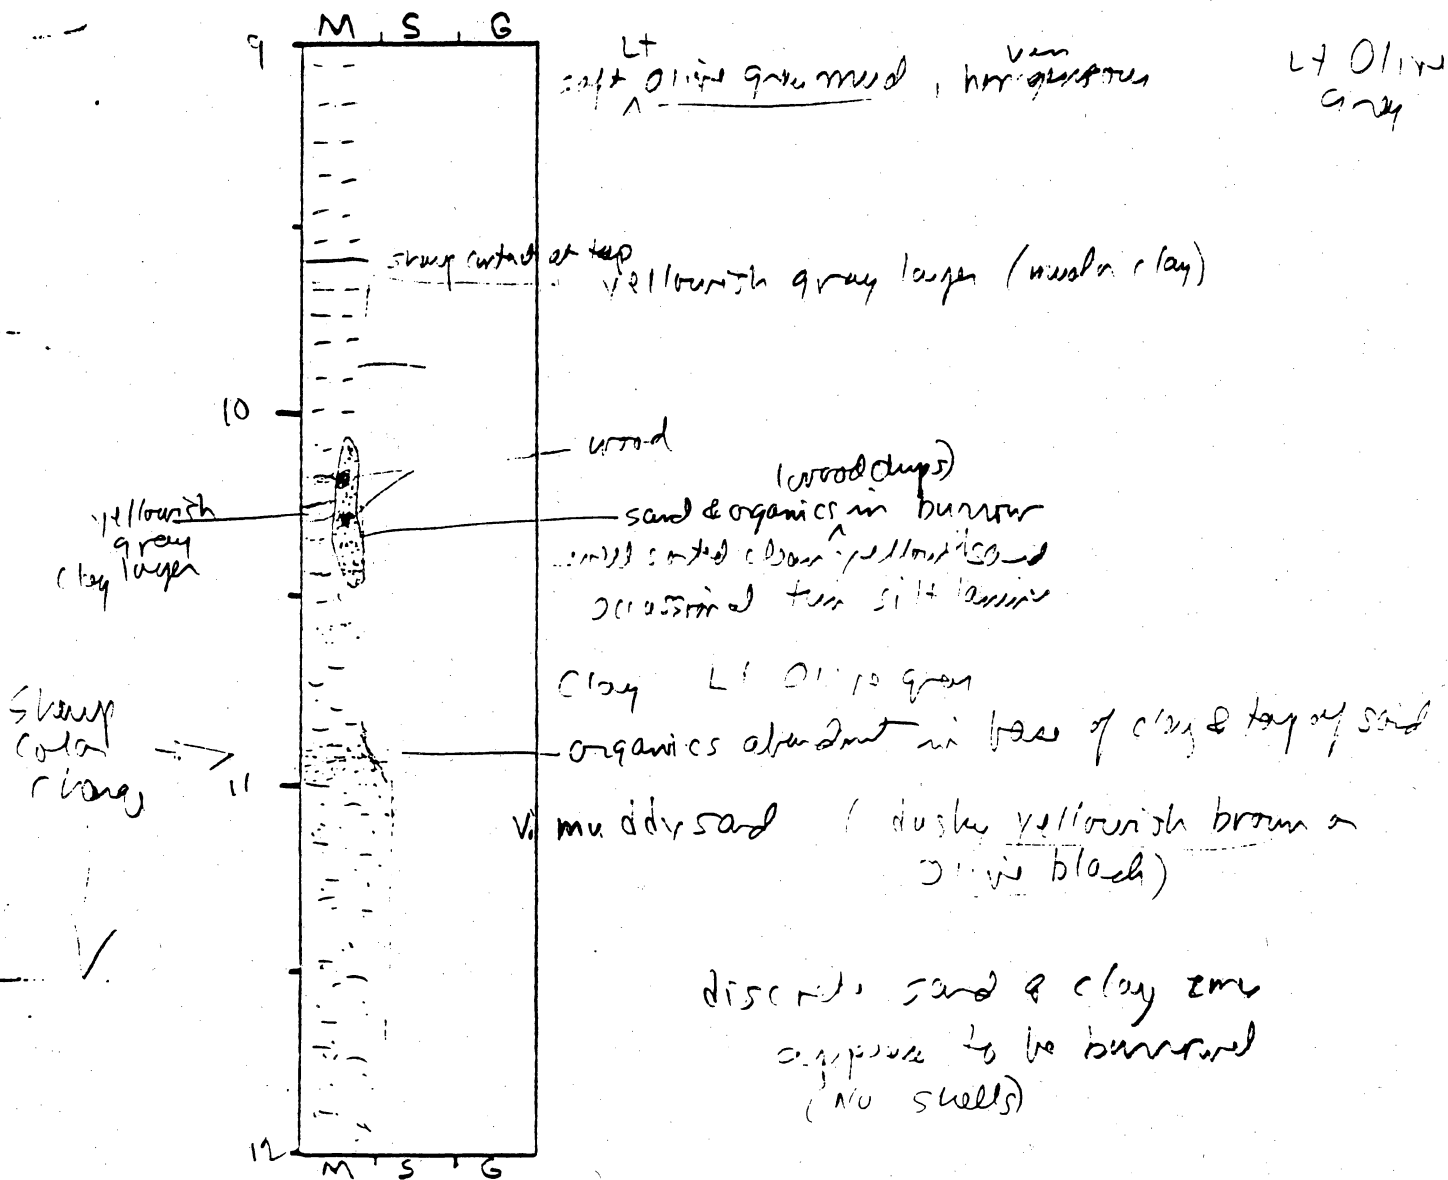 M S G
9
Lt
soft Olive gray mud, homogeneous
very
Lt Olive
Gray
sharp contact at top
yellowish gray layer (mud or clay)
10
wood
(wood chips)
sand & organics in burrow
yellowish
gray
clay layer
well sorted clean yellowish sand
occassional thin silt laminae
Clay Lt Olive gray
Sharp
color
change
organics abundant in base of clay & top of sand
11
V. muddy sand (dusky yellowish brown or
olive black)
discrete sand & clay zones
appear to be burrowed
(No shells)
12
M S G